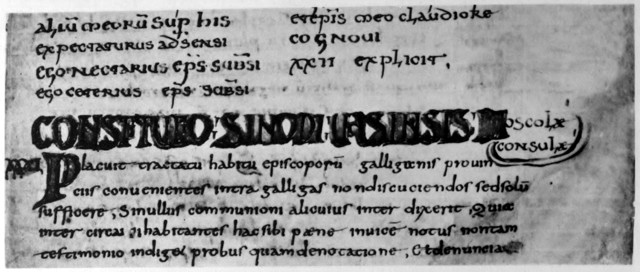 aliū meorū sup his
expectaturus adsensi
ego nectarius eps subsi
ego ceterius eps subsi
et epis meo claudio te
cognoui
xxii explicit.
CONSTITUTIO SINODI UASENSIS
oscolæ
consulæ
Placuit tractatu habitu episcoporū gallicenis prouin
ciis conuenientes intra gallias non discuciendos sed solū
sufficere, Si nullus communioni alicuius inter dixerit, Quia
inter circa habitantes hac sibi pæne inuicē notus non tam
testimonio indiget probus quam denotacione, Et denuncia